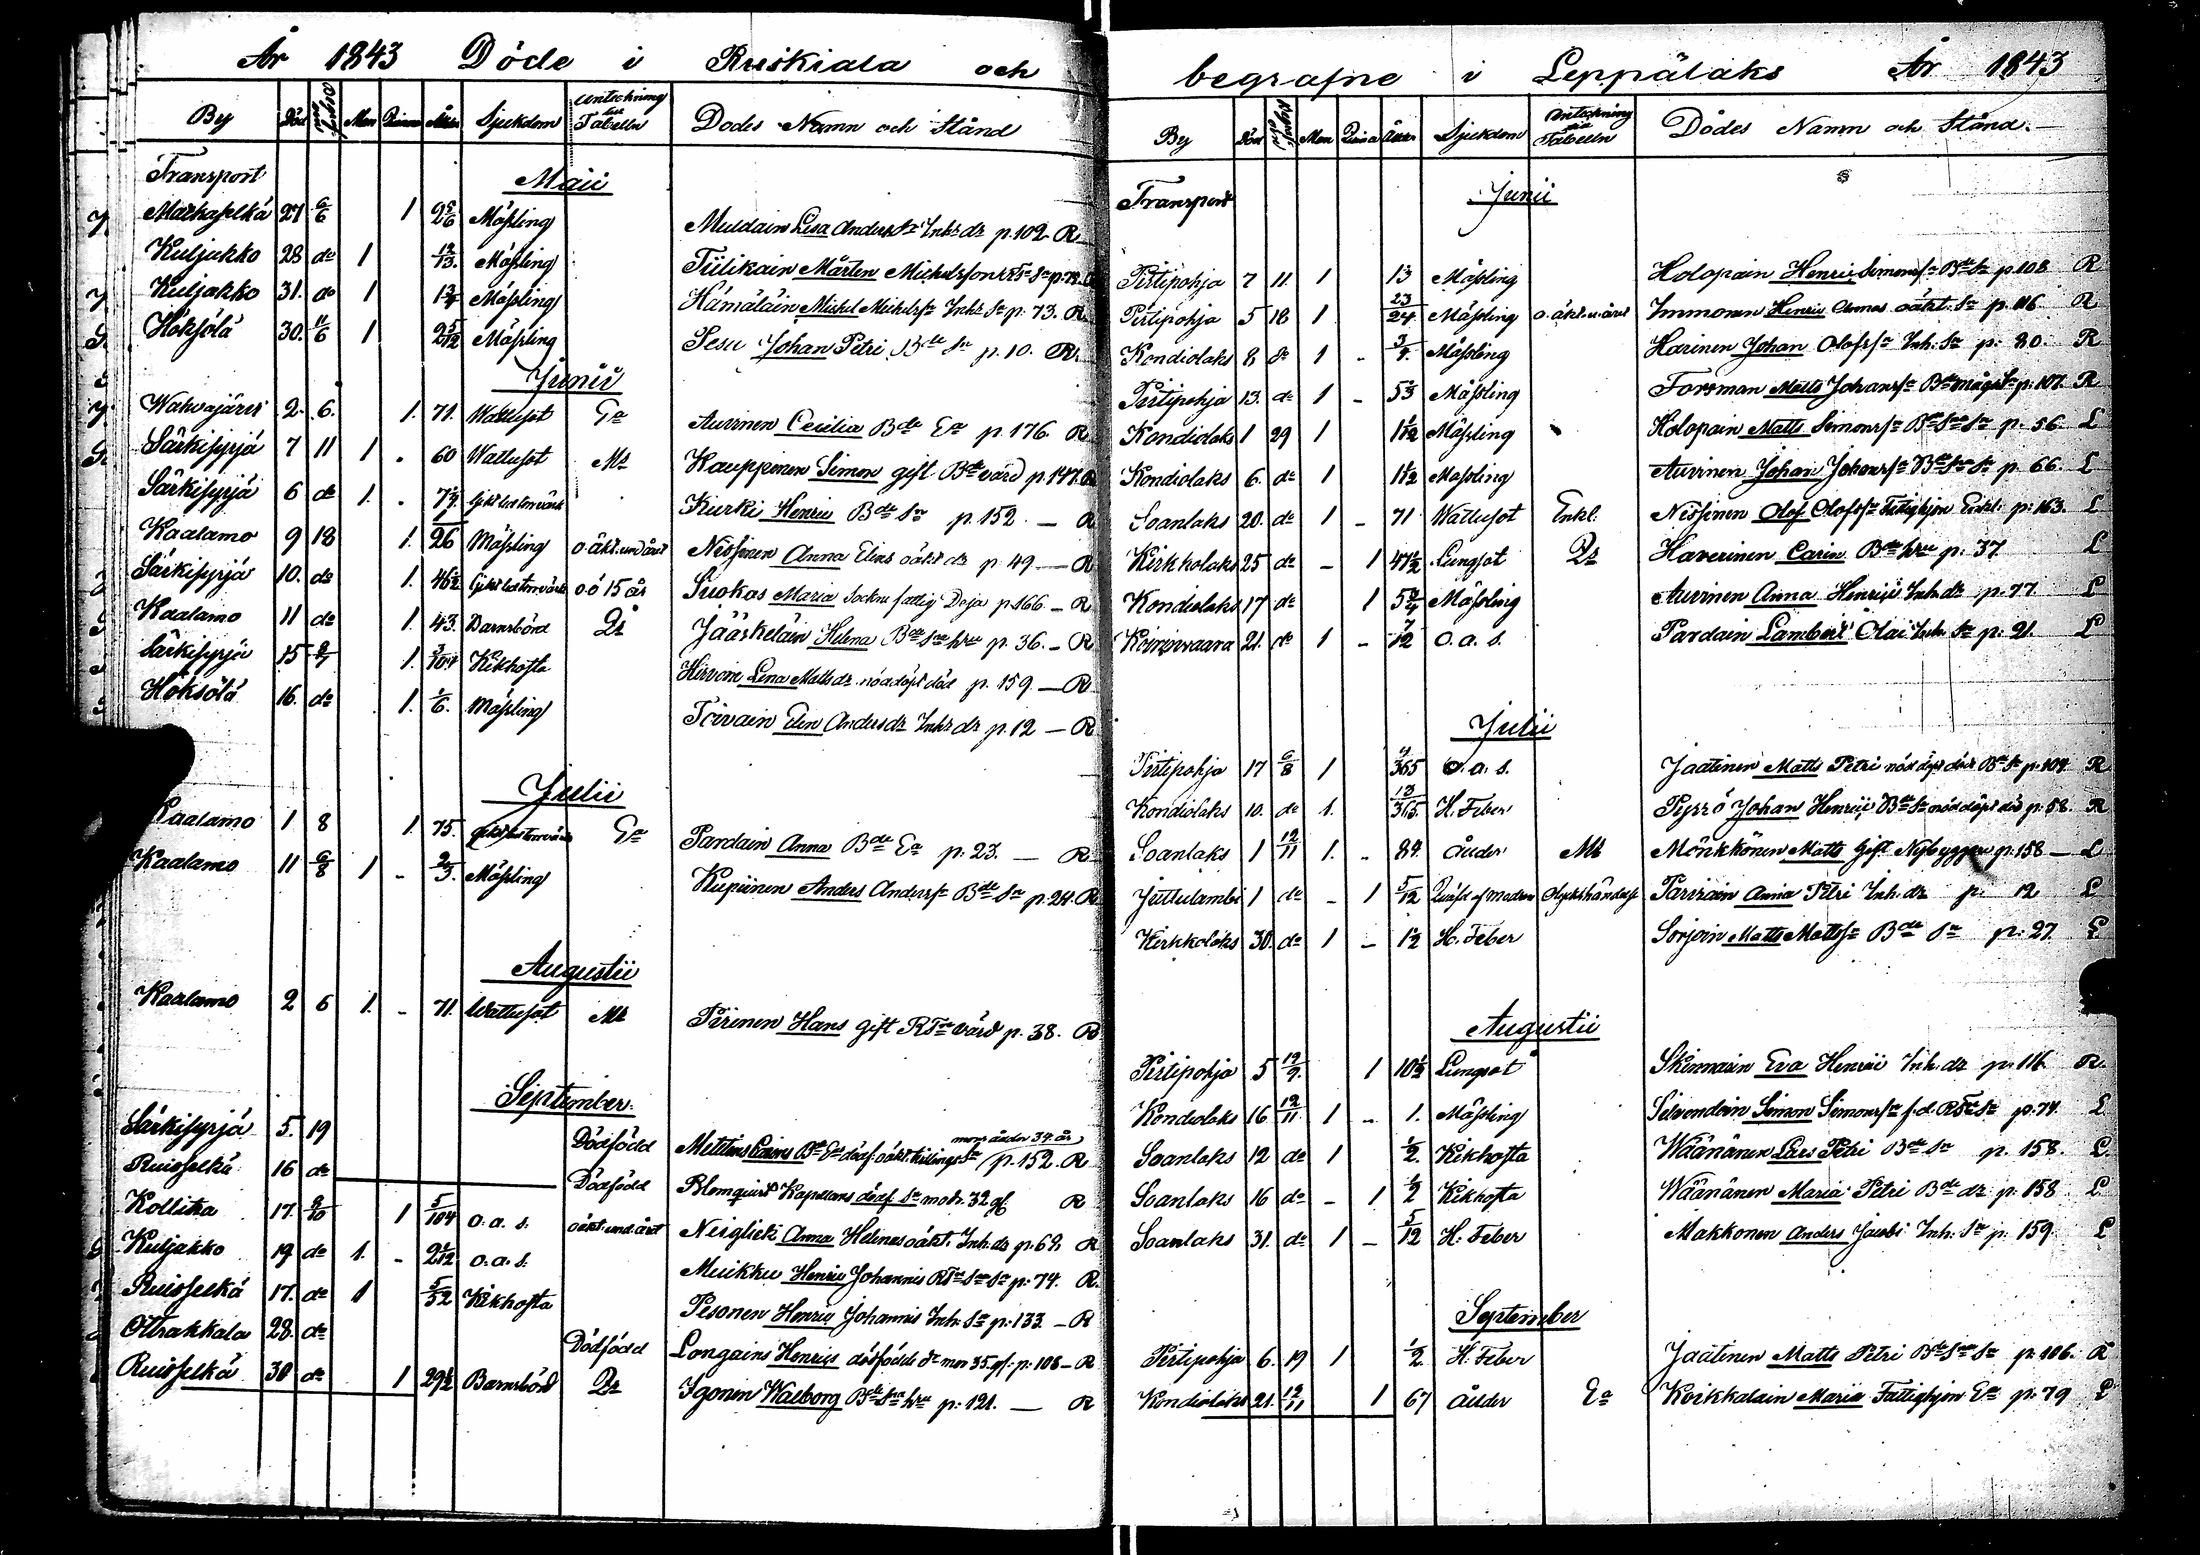 År 1843 Döde i Ruskiala och
By Död Men Ålder Sjuckdom Antekning till Tabelln Dödes Namn och Stånd
Transport Maii
27 6/6 1 2 5/6 Mässling Muldain Lisa Anders Inhs dr p. 102. R
Kuljakko 28 do 1 12/13. Mässling Tiilikain Mårten Michelsson p. 79.
Kuljakko 31. do 1 1 3/4 Mässling Hämäläin Michel Michelss Inhs sn p. 73. R
Höksölä 30. 11/6 1 2 5/12 Mässling Sesu Johan Petri Bde sn p. 10. R.
Junii
Wahvajärvi 2. 6. 1. 71. Wattusot Ea Auvinen Cecilia Bde Ea p. 176. R
Särkisyrjä 7 11 1 - 60 Wattusot Mr Kauppinen Simon gift Bde värd p. 147.
Särkisyrjä 6 do 1. - Kurki Henric Bde sn p. 152. — R
Kaalamo 9 18 1. 26 Mässling o. äkt. und. året Nissinen Anna Elins oäkt dr p. 49 — R
Särkisyrjä 10. do 1. 46 1/2 o. ö 15 år Suokas Maria Sockne fattig Deja p. 166. — R
Kaalamo 11 do 1. 43. Barnsbörd Qr Jääskeläin Helena Bde sn hru p. 36. — R
Särkisyrjä 15 2/7 1. 3/104 Kikhosta Hirvoin Lena Matts dr. nöddöpt död p. 159. — R
Höksölä 16. do 1. 1/6. Mässling Toivain Elin Anders dr Inhs dr p. 12 — R
Julii
Kaalamo 1 8 1. 75. Ea Pardain Anna Bde Ea p. 23. — R
Kaalamo 11 6/8 1 - 2/3. Mässling Kupiinen Anders Anderss Bde sn p. 24. R
Augustii
Kaalamo 2 6 1. - 71. Wattusot Mr Piirinen Hans gift RTa värd p. 38. R
September.
Särkisyrjä 5. 19 Dödfödd Mettins Carins Bde Ea dödf. oäkt. tvillings Sn moder under 34 år p. 152. R
Ruisselkä 16 do Dödfödd Blomquist Kapellans dödf. Sn modr. 32 gf R
Kollitka 17. 2/10 1 5/104 o. a. s. oäkt. und. året Neiglick Anna Helenas oäkt. Inh. dr p. 62. R
Kuljakko 19 do 1. - 2 1/12 o. a. s. Muikku Henric Johannis RTa sn sn p. 74. R.
Ruisselkä 17. do 1 5/52 Kikhosta Pesonen Henric Johannis Inh. Sn p. 133. — R
Otrakkala 28. do Dödfödd Longains Henrics dödfödde dr mor 35. gf. p. 108 — R
Ruisselkä 30 do 1 29 1/2 Barnsbörd Qr Igonin Walborg Bde sn hru p. 121. — R
begrafne i Leppälaks År 1843
By Död Men Qvina Ålder Sjuckdom Antekning till Tabelln Dödes Namn och Stånd.
Transport Junii
Pirtipohja 7 11. 1 13 Mässling Holopain Henric Simonss Bde sn p. 108 R
Pirtipohja 5 18 1 23/24 Mässling o. äkt. u. året Immonen Henric Annas oäkt. Sn p. 116. R
Kondiolaks 8 do 1 - 3/4. Mässling Harinen Johan Olofss Inh. Sn p. 80. R
Pirtipohja 13. do 1 - 5 3/4 Mässling Forsman Matts Johanss Bde mågs Sn p. 107. R
Kondiolaks 1 29 1 1 1/12 Mässling Holopain Matts Simonss Bde sn sn p. 56. L
Kondiolaks 6. do 1 1 1/12 Mässling Auvinen Johan Johanss Bde sn sn p. 66. L
Soanlaks 20. do 1 - 71 Wattusot Enkl. Nissinen Olof Olofss Fattighjon Enkl. p. 163. L
Kirkkolaks 25 do - 1 47 1/2 Lungsot Qr Haverinen Carin Bde hru p. 37. L
Kondiolaks 17 do 1 5 3/4 Mässling Auvinen Anna Henrici Inh. dr p. 77. L
Koirinvaara 21. do 1 - 7/12 o. a. s. Pardain Lambert Olai Inh. Sn p. 21. L
Julii
Pirtipohja 17 6/8 1 9/365 o. a. s. Jaatinen Matts Petri nöd döpt död Bde sn p. 104. R
Kondiolaks 10. do 1. 13/365. H. Feber Pyrrö Johan Henrici Bde sn nöddöpt död p. 58. R
Soanlaks 1 12/11 1. - 84. Ålder Mr Mönkkönen Matts Gift Nybyggare p. 158 — L
Juttulambi 1 do - 1 5/12 Qväfd af modren Olyckshändelse Parviain Anna Petri Inh. dr p. 12 L
Kirkkolaks 30. do 1 - 1 1/2 H. Feber Sorjoin Matts Mattss Bde sn p. 27. L
Augustii
Pirtipohja 5 12/9. 1 10 1/2 Lungsot Skinnain Eva Henrici Inh. dr p. 116 R.
Kondiolaks 16 12/11 1 - 1. Mässling Silvendoin Simon Simonss f.d. RTa Sn p. 74. L
Soanlaks 12 do 1 1/2. Kikhosta Wäänänen Lars Petri Bde sn p. 158. L
Soanlaks 16 do - 1 1/2 Kikhosta Wäänänen Maria Petri Bde dr p. 158 L
Soanlaks 31. do 1 - 5/12 H. Feber Makkonen Anders Jacobi Inh. Sn p. 159. L
September
Pirtipohja 6. 19 1 1/2. H. Feber Jaatinen Matts Petri Bde sn sn p. 106. R
Kondiolaks 21. 12/11 1 67 Ålder Ea Koikkalain Maria Fattighjon Ea p. 79 L